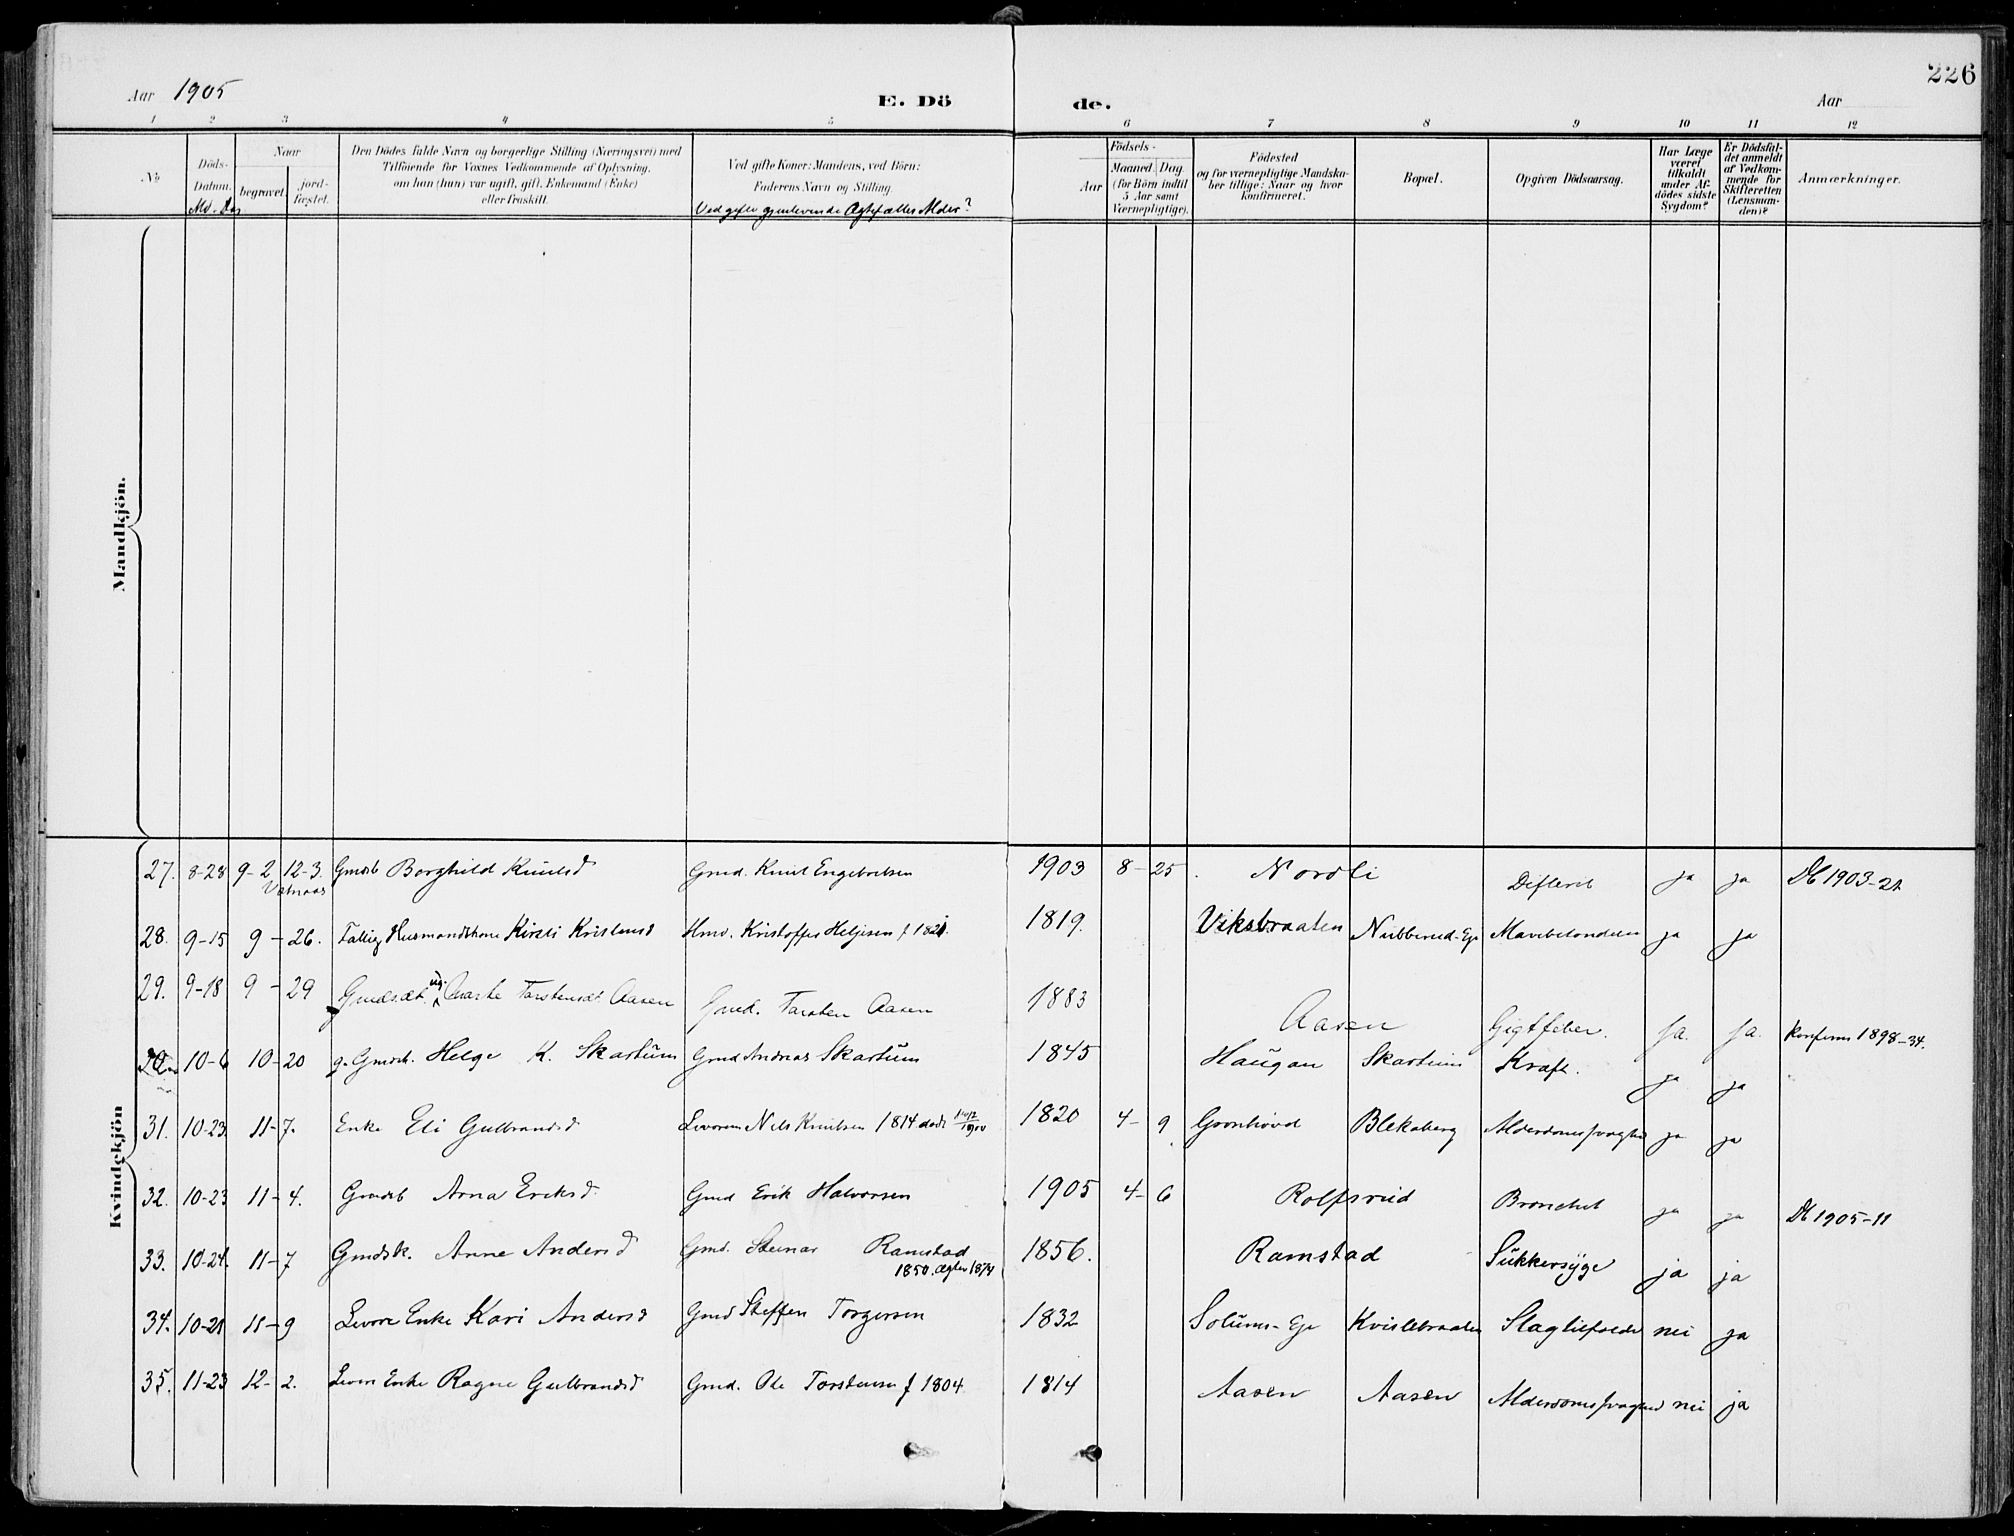 226
Aar 1905
E. Döde.
Aar
1 2 3 4 5 6 7 8 9 10 11 12
No
Döds-Datum.
Md. Dag
Naar
begravet.
jord-fæstet.
Den Dödes fulde Navn og borgerlige Stilling (Næringsvei) med Tilföiende for Voxnes Vedkommende af Oplysning, om han (hun) var ugift, gift, Enkemand (Enke) eller fraskilt.
Ved gifte Koner: Mandens, ved Börn: Faderens Navn og Stilling.
Ved gifte gjenlevende Ægtefælles Alder?
Födsels-
Aar
Maaned. Dag.
(for Börn indtil 5 Aar samt Værnepligtige).
Födested og for værnepligtige Mandskaber tillige: Naar og hvor konfirmeret.
Bopæl.
Opgiven Dödsaarsag.
Har Læge været tilkaldt under Afdödes sidste Sygdom?
Er Dödsfaldet anmeldt af Vedkommende for Skifteretten (Lensmanden)?
Anmærkninger.
Mandkjön.
Kvindekjön
27. 8-28 9-2 12-3. Gmdsb Borghild Knutsd Gmd. Knut Engebretsen 1903 8-25. Nordli Difterit ja ja Db 1903-21
Vatnaas
28. 9-15 9-26. Fattig Husmandskone Kirsti Kristensd Hmd. Kristoffer Helgesen f 1821. 1819. Viksbraaten Nubberud-Eje Mavebetændelse ja ja
29. 9-18 9-29 Gmdsdat. ug. Marte Torstensdt. Aasen Gmd. Torsten Aasen 1883 Aasen Gigtfeber. Ja. Ja. Konfirm 1898-34.
30 10-6 10-20 g. Gmdsk. Helge K. Skartum Gmd Andreas Skartum 1845 Haugan Skartum Kræft. ja ja
31. 10-23 11-7. Enke Eli Gulbrandsd Levorom Nils Knutsen 1814 död 1900 1820 4-9 Grønhovd Blekaberg Alderdomssvaghed ja ja
32. 10-23 11-4. Gmdsb Anna Eriksd Gmd Erik Halvorsen 1905 4-6 Rolfsrud Bronchit ja ja Db 1905-11
33. 10-24. 11-7 Gmdsk. Anne Andersd Gmd. Steinar Ramstad 1856. Ramstad Sukkersyge ja ja
1850. Ægtev 1874
34. 10-21 11-9 Levore Enke Kari Andersd Gmd Steffen Torgersen 1832 Solums-Eje Kvislebraaten Slagtilfælde nei ja
35. 11-23 12-2. Levore Enke Ragne Gulbrandsd Gmd. Ole Torstensen f 1804 1814 Aasen Aasen Alderdomssvaghed nei ja